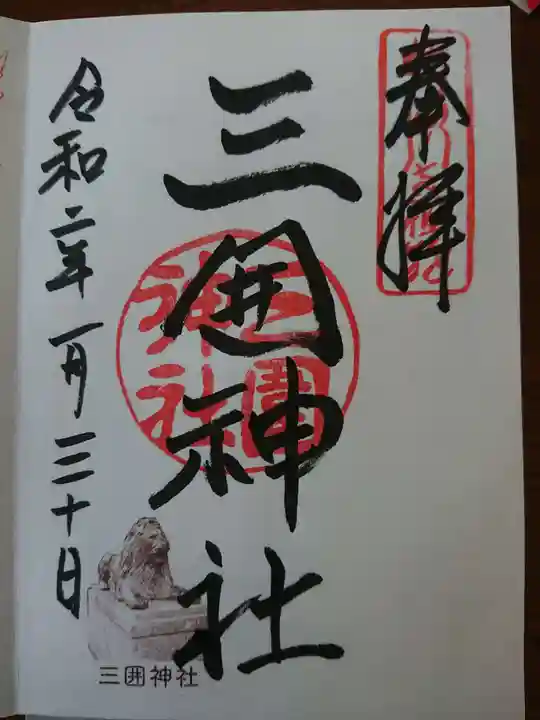 奉拝
三囲神社
三囲神社
令和二年一月三十日
三囲神社